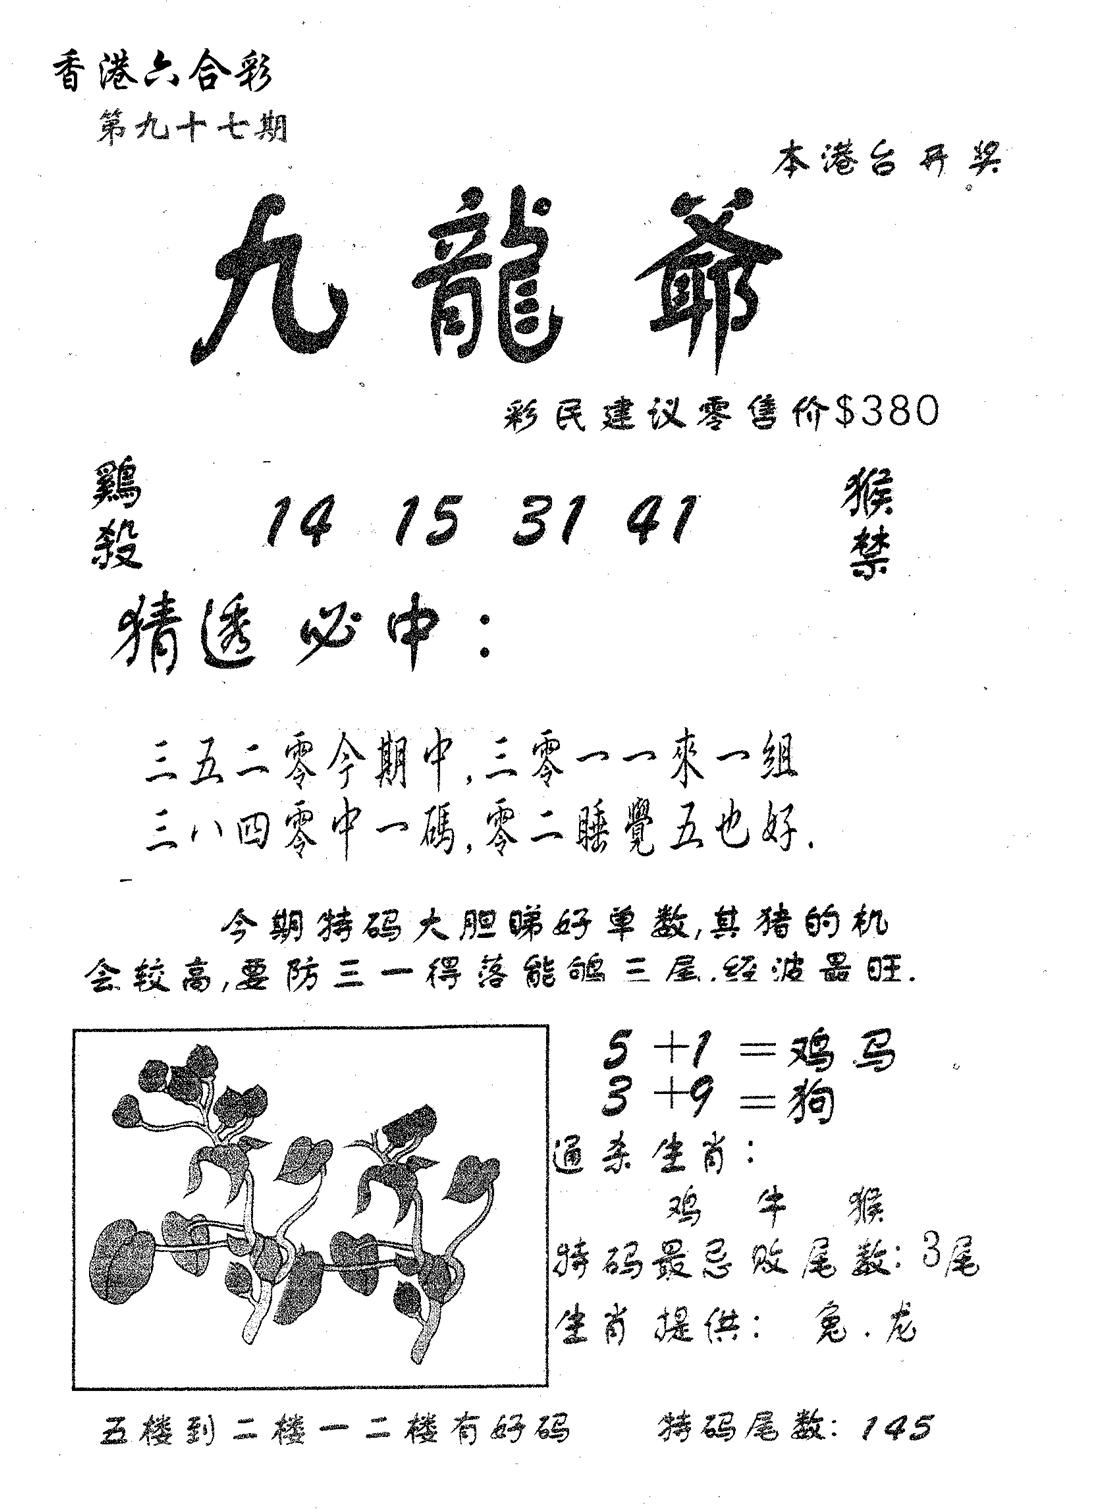 香港六合彩
第九十七期
本港台开奖
九龍爺
彩民建议零售价$380
鷄殺
14 15 31 41
猴禁
猜透必中：
三五二零今期中,三零一一來一組
三八四零中一碼,零二睡覺五也好.
今期特码大胆睇好单数,其猪的机
会较高,要防三一得落能鸲三尾.经波最旺.
5+1=鸡马
3+9=狗
通杀生肖：
鸡 牛 猴
特码最忌败尾数：3尾
生肖提供： 兔.龙
五楼到二楼一二楼有好码
特码尾数：145